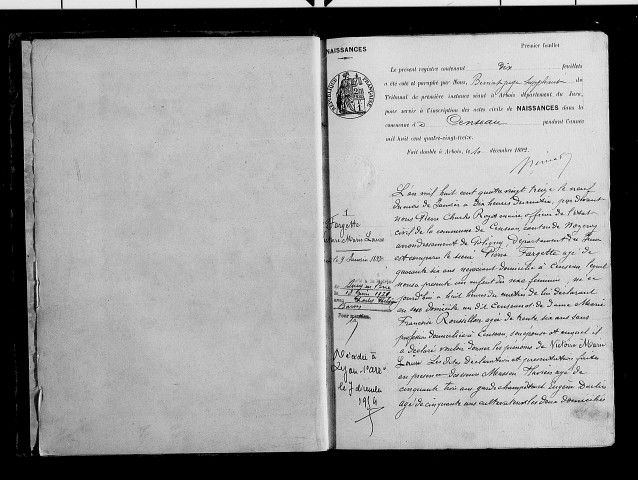 NAISSANCES
Premier feuillet
Le présent registre contenant dix feuillets
a été coté et paraphé par Nous, suppléant du
Tribunal de première instance séant à Arbois département du Jura,
pour servir à l'inscription des actes civils de NAISSANCES dans la
commune d Censeau pendant l'année
mil huit cent quatre-vingt-treize.
Fait double à Arbois, le 10 décembre 1892.
RÉPUBLIQUE FRANÇAISE
1
Fargette
Victoire Marie Louise
le 9 Janvier 1893
Décédée à
Lyon
le 7 décembre
19
L'an mil huit cent quatre vingt treize le neuf
du mois de Janvier à dix heures du matin, par devant
nous Pierre Charles Roy maire, officier de l'état
civil de la commune de Censeau canton de Nozeroy
arrondissement de Poligny, Département du Jura
est comparu le sieur Pierre Fargette agé de
quarante six ans négociant domicilié à Censeau, lequel
nous a présenté un enfant du sexe féminin, né ce
jourd'hui à huit heures du matin de lui déclarant
en son domicile au dit Censeau et de dame Marie
Françoise Roussillon agée de trente six ans sans
profession domiciliée à Censeau, son épouse et auquel il
a déclaré vouloir donner les prénoms de Victoire Marie
Louise. Les dites déclaration et présentation faites
en présence des sieurs Masson agé de
cinquante trois ans garde champêtre et Eugène
agé de cinquante ans cultivateur les deux domiciliés